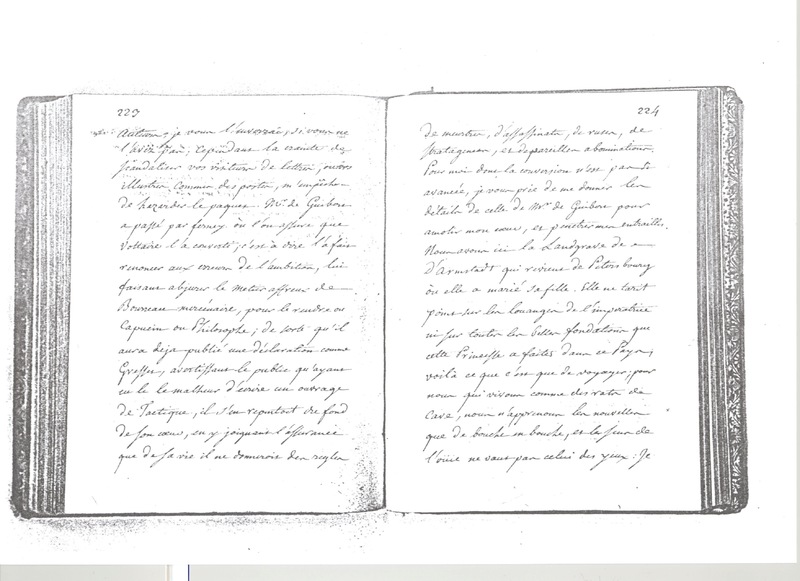 223
Auteur, je vous l'enverrai, si vous ne
l'avez pas; cependant la crainte de
scandaliser vos visiteurs de lettres, ouvers
illustres Commis des postes, m'empêche
de hazarder le paquet. Mr. de Guibert
a passé par ferney où l'on assure que
Voltaire l'a converti; c'est à dire l'a fait
renoncer aux erreurs de l'ambition, lui
faisant abjurer le metier affreux de
Bourreau mercénaire, pour le rendre ou
Capucin ou Philosophe; de sorte qu'il
aura deja publié une déclaration comme
Gresset, avertissant le public qu'ayant
eu le malheur d'écrire un ouvrage
de Tactique, il s'en repentoit du fond
de son cœur, en y joignant l'assurance
que de sa vie il ne donneroit des regles
224
de meurtres, d'assassinats, de ruses, de
stratagemes, et de pareilles abominations.
Pour moi dont la conversion n'est pas
avancée, je vous prie de me donner les
détails de celle de Mr de Guibert pour
amolir mon cœur, et penetrer mes entrailles.
Nous avons ici la Landgrave de
d'Armstadt qui revient de Petersbourg
où elle a marié sa fille. Elle ne tarit
point sur les louanges de l'imperatrice
ni sur toutes les belles fondations que
cette Princesse a faites dans ce Pays,
voilà ce que c'est que de voyager; pour
nous qui vivons comme des rats de
Cave, nous n'apprenons les nouvelles
que de bouche en bouche, et le sens de
l'ouïe ne vaut pas celui des yeux: Je